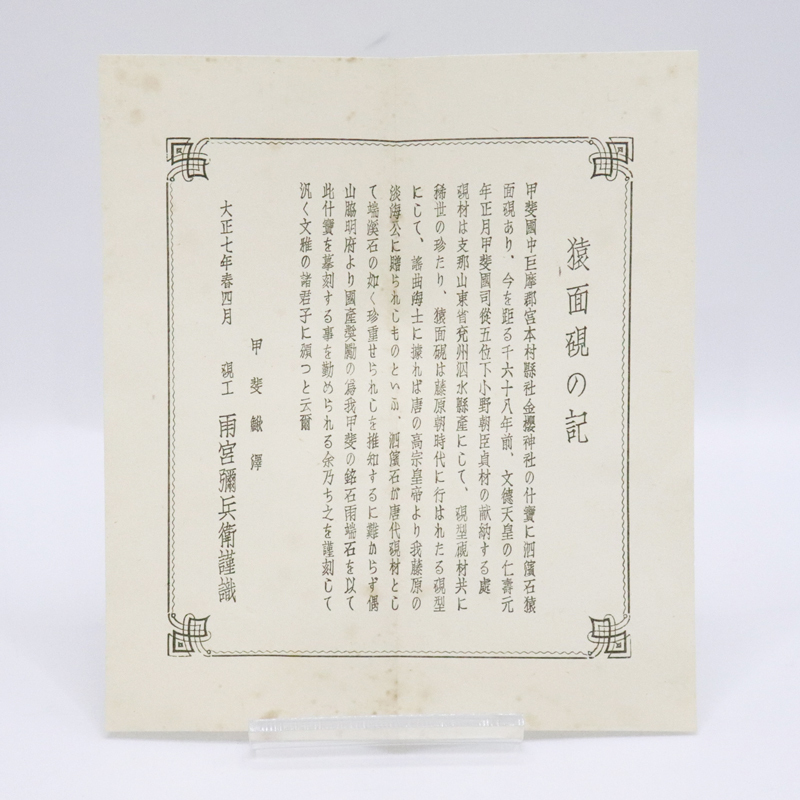 猿面硯の記
甲斐國中巨摩郡宮本村縣社金櫻神社の什寶に泗濱石猿
面硯あり、今を距る千六十八年前、文德天皇の仁壽元
年正月甲斐國司從五位下小野朝臣貞材の献納する處
硯材は支那山東省兗州泗水縣產にして、硯型硯材共に
稀世の珍たり、猿面硯は藤原朝時代に行はれたる硯型
にして、謠曲海士に據れば唐の高宗皇帝より我藤原の
淡海公に贈られしものといふ、泗濱石が唐代硯材とし
て端溪石の如く珍重せられしを推知するに難からず偶
山脇明府より國產奬勵の爲我甲斐の銘石雨端石を以て
此什寶を摹刻する事を勸められる余乃ち之を謹刻して
汎く文雅の諸君子に頒つと云爾
大正七年春四月
甲斐鰍澤
硯工 雨宮彌兵衛謹識